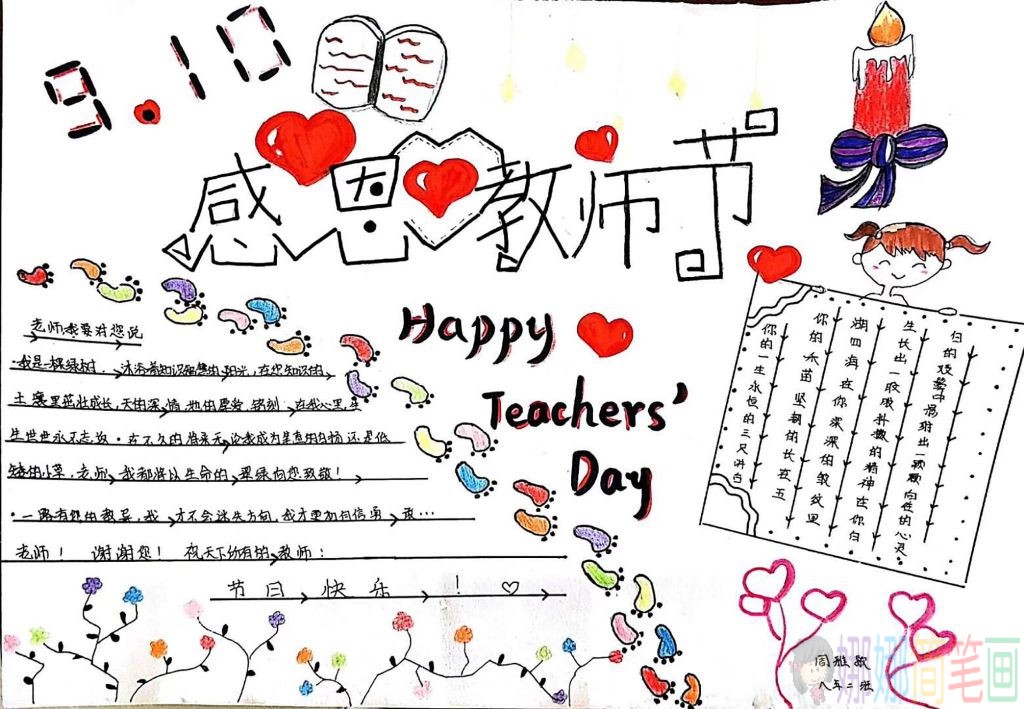 9.10
感恩教师节
Happy
Teachers'
Day
老师,我要对您说
·我是一棵绿树，沐浴着知识智慧的阳光,在您知识的
土壤里茁壮成长,天的深情,地的厚爱,铭刻在我心里,生
生世世永不忘 。在不久的将来,无论我成为 的白杨还是低
矮的小草,老师,我都将以生命的翠绿向您致敬!
·一路有您的教导,我才不会迷失方向,我才更加有信 …
老师! 谢谢您! 祝天下所有的教师:
节日快乐!
归的枝 中 出一颗颗向 的心灵
生长出一 的精神在你白
湖四海 在你深深的皱纹里
你的禾苗 坚韧的长在五
你的一生永恒的三尺讲台
周雅
八年二班
娜娜简笔画